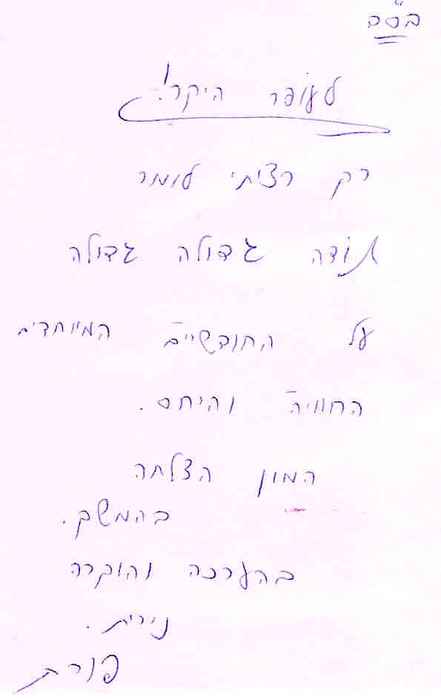 בס"ד
לעופר היקר!
רק רציתי לומר
תודה גדולה גדולה
על החודשיים המיוחדים
החוויה והיחס.
המון הצלחה
בהמשך.
בהערכה והוקרה
נירית.
פורת